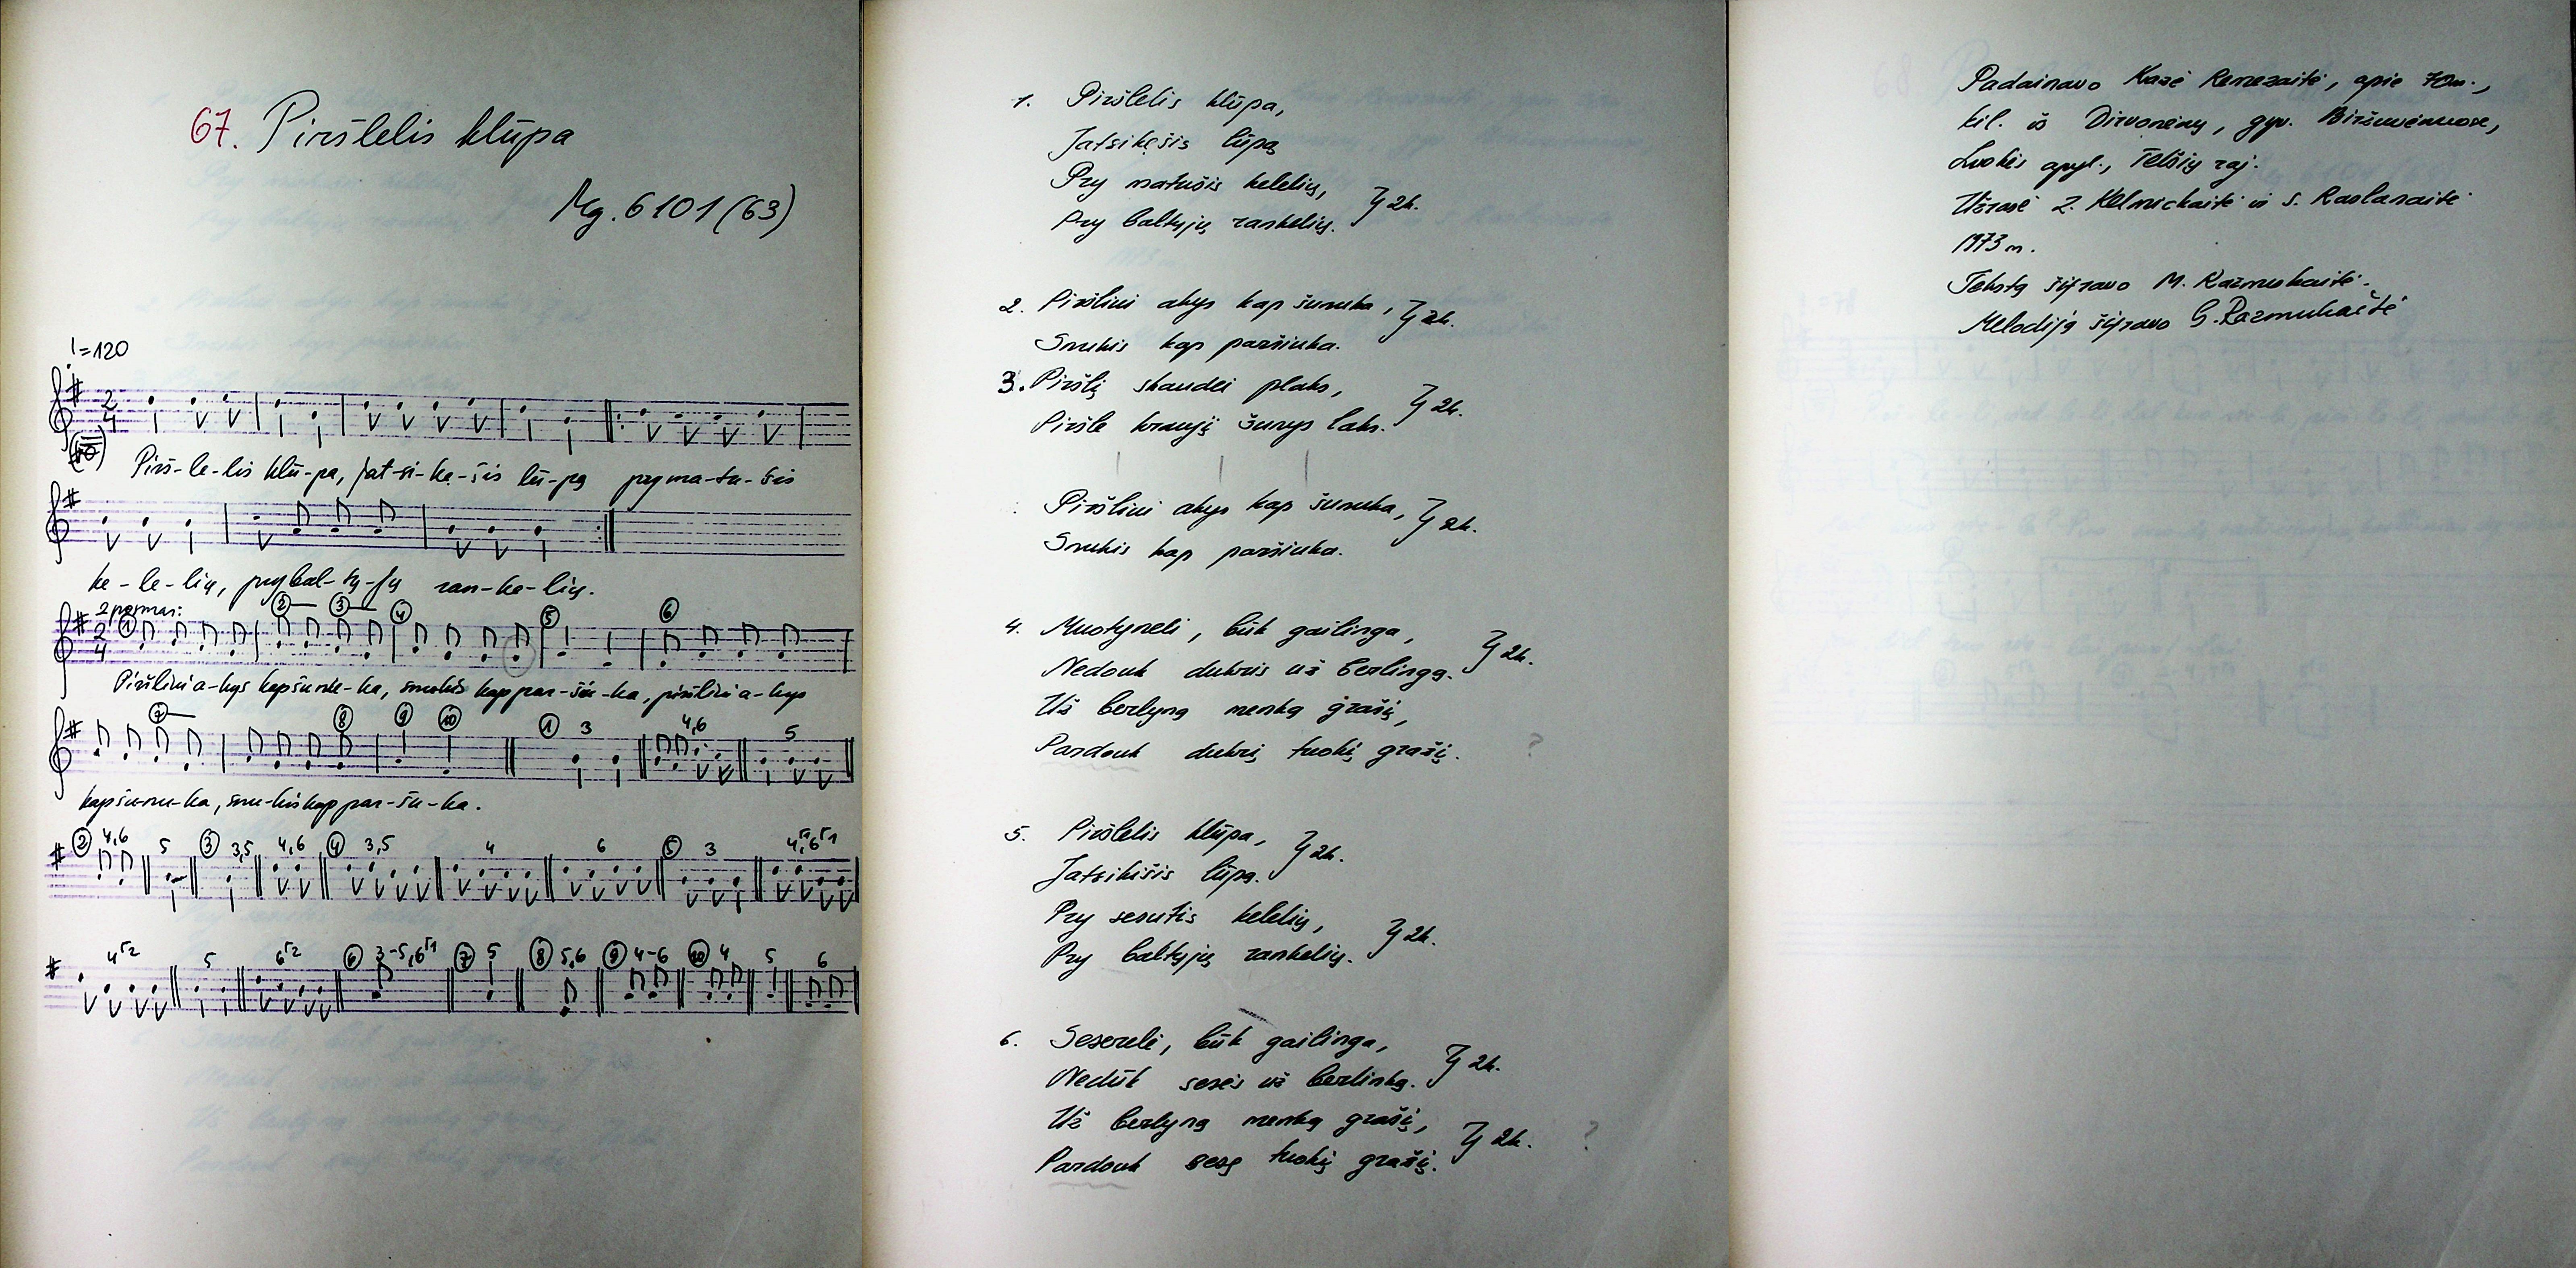 67. Piršlelis klūpa
Mg. 6101 (63)
♩=120
Pirš-le-lis klū-pa, jat-si-kę-šis lū-pą pry ma-tu-šis
ke-le-lių, pry bal-tų-jų ran-ke-lių.
2 posmas:
Piršlini a-kys kap šunu-ka, snukis kap par-šiu-ka, piršlini a-kys
kap šu-nu-ka, snu-kis kap par-šu-ka.
1. Piršlelis klūpa,
Jatsikęšis lūpą
Pry matušis kelelių,
Pry baltųjų rankelių. } 2k.
2. Piršlini akys kap šunuka,
Snukis kap paršiuka. } 2k.
3. Piršlį skaudei plaks,
Piršle kraujį šunys laks. } 2k.
Piršlini akys kap šunuka,
Snukis kap paršiuka. } 2k.
4. Muotyneli, būk gailinga,
Nedouk dukris už berlingą. } 2k.
Už berlyną menką grašį,
Pardouk dukrį tuokį grašį. ?
5. Piršlelis klūpa,
Jatsikišis lūpą. } 2k.
Pry sesutis kelelių,
Pry baltųjų rankelių. } 2k.
6. Sesereli, būk gailinga,
Nedūk sesės už berlinką. } 2k.
Už berlyną menką grašį,
Pardouk sesę tuokį grašį. } 2k. ?
Padainavo Kazė Remezaitė, apie 70m.,
kil. iš Dirvonėnų, gyv. Biržuvėnuose,
Luokės apyl., Telšių raj.
Užrašė Z. Kelmickaitė ir S. Raslanaitė
1973 m.
Tekstą šifravo M. Razmukaitė.
Melodiją šifravo G. Razmukaitė